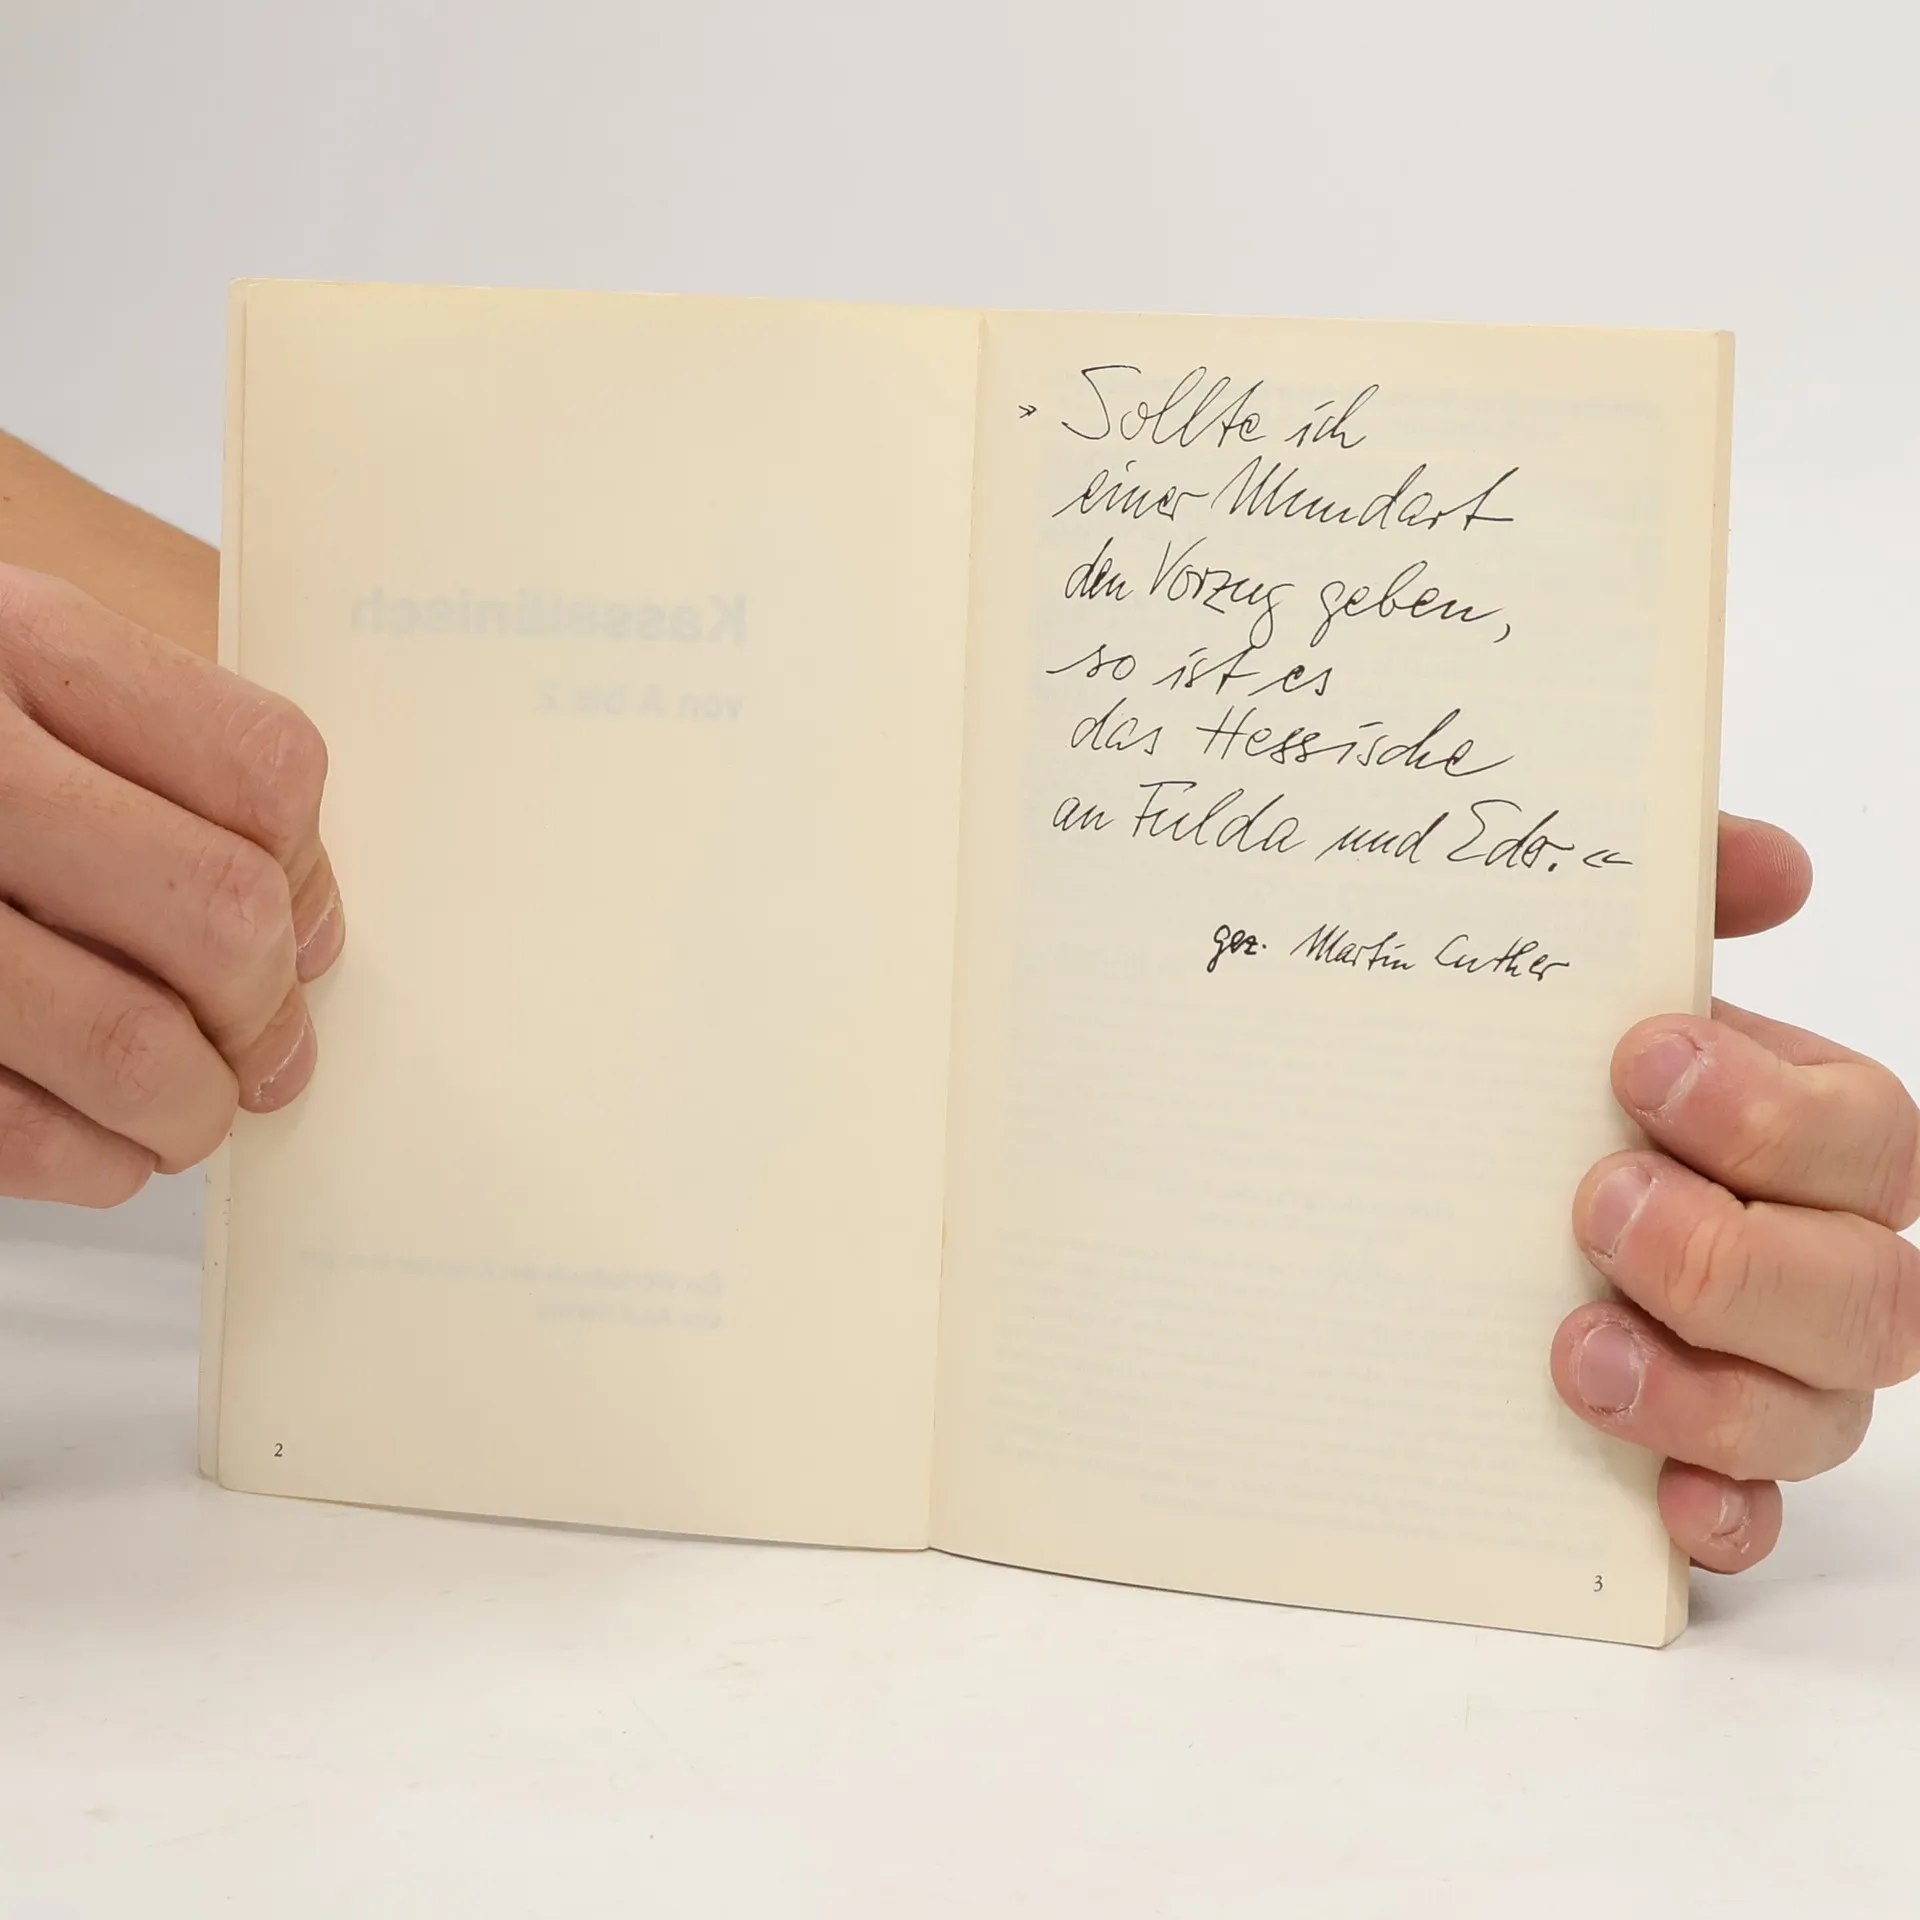 Kasselänisch
von A bis Z
2
» Sollte ich
einer Mundart
den Vorzug geben,
so ist es
das Hessische
an Fulda und Eder. «
gez. Martin Luther
3